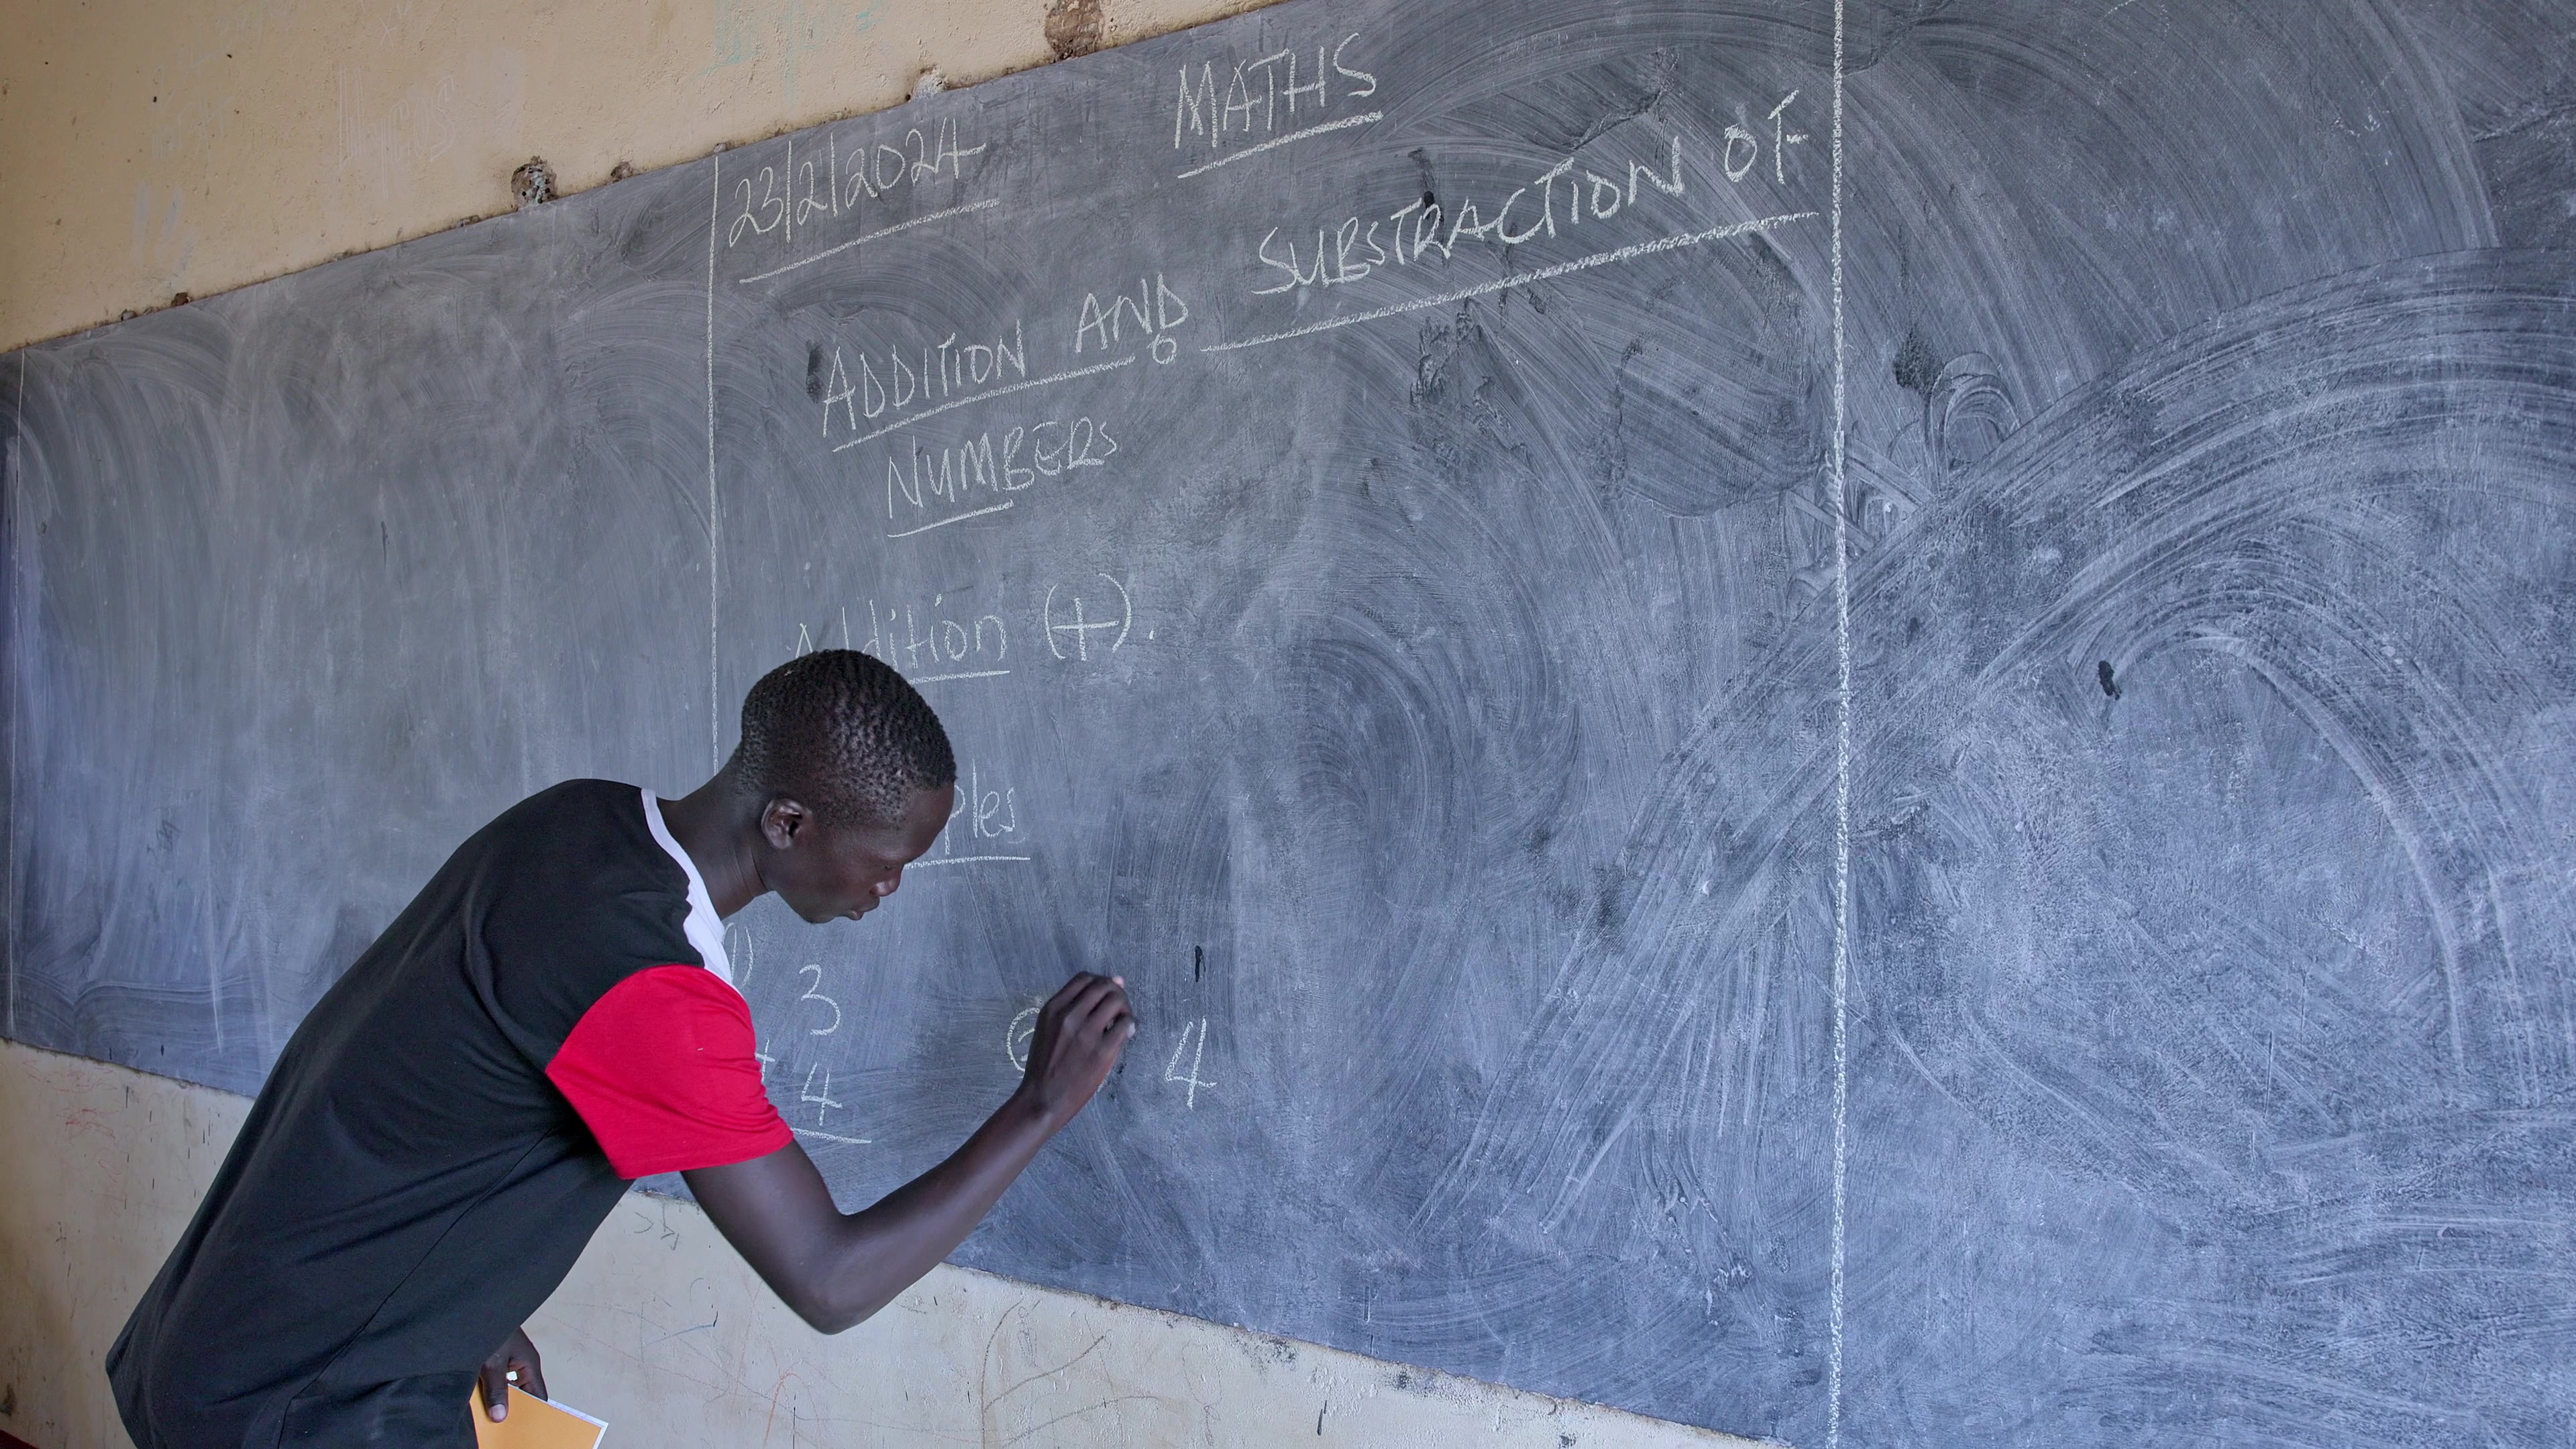 MATHS
23/2/2024
ADDITION AND SUBSTRACTION OF
NUMBERS
Addition (+).
ples
1) 3
+ 4
4